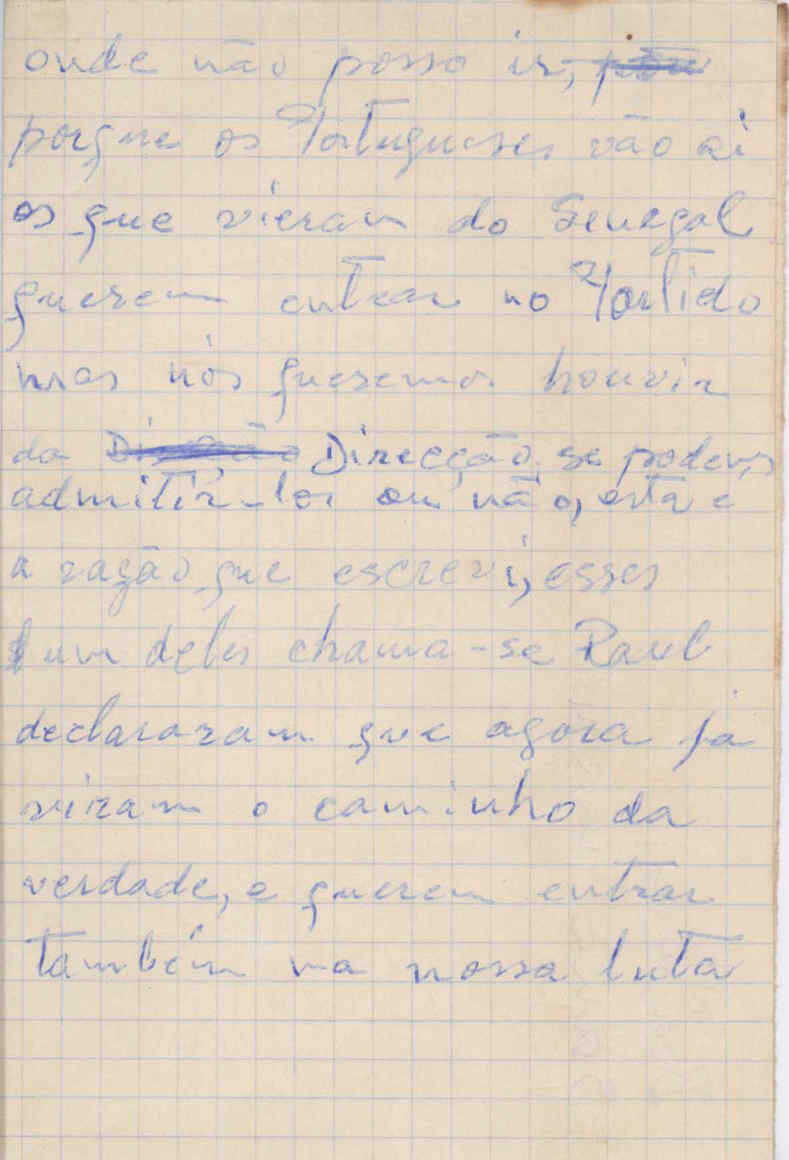 onde não posso ir,
porque os Portugueses vão ai
os que vieram do Senegal
querem entrar no Partido
mas nós queremos houvir
da Direcção se podem
admitir-los ou não, esta e
a razão que escrevi, esses
um deles chama-se Raul
declararam que agora já
viram o caminho da
verdade, e querem entrar
também na nossa luta